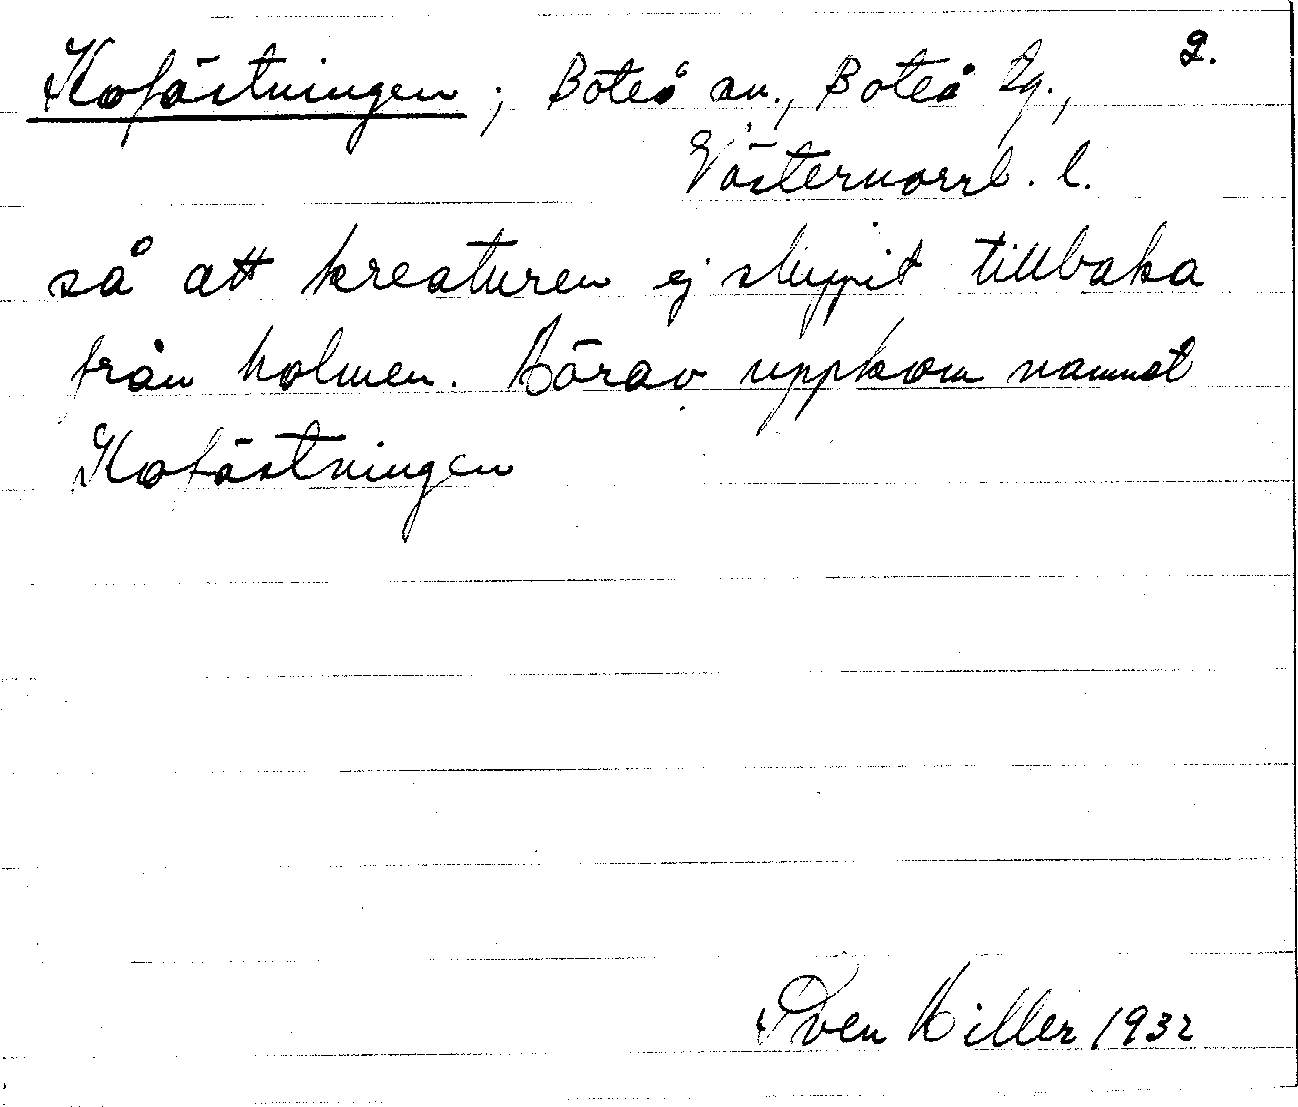 2.
Kofästningen; Boteå sn., Boteå tg.,
Västernorrl. l.
så att kreaturen ej sluppit tillbaka
från holmen. Härav uppkom namnet
Kofästningen
Sven Hiller 1932